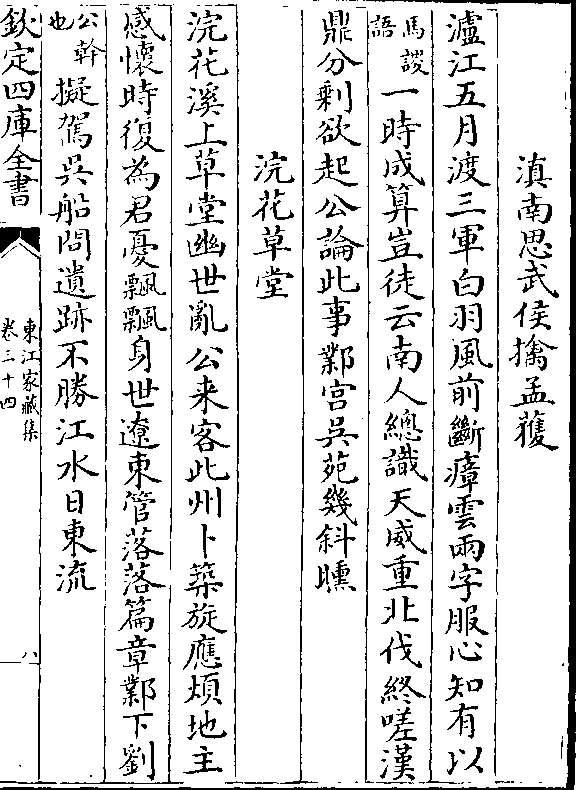 滇南思武侯擒孟獲
瀘江五月渡三軍白羽風前斷瘴雲兩字服心知有以
馬謖語一時成算豈徒云南人總識天威重北伐終嗟漢
鼎分剩欲起公論此事鄴宫吳苑幾斜曛
浣花草堂
浣花溪上草堂幽世亂公来客此州卜築旋應煩地主
感懷時復為君憂飄飄身世遼東管落落篇章鄴下劉
公幹也擬駕吳船問遺跡不勝江水日東流
欽定四庫全書
東江家藏集
卷三十四
八